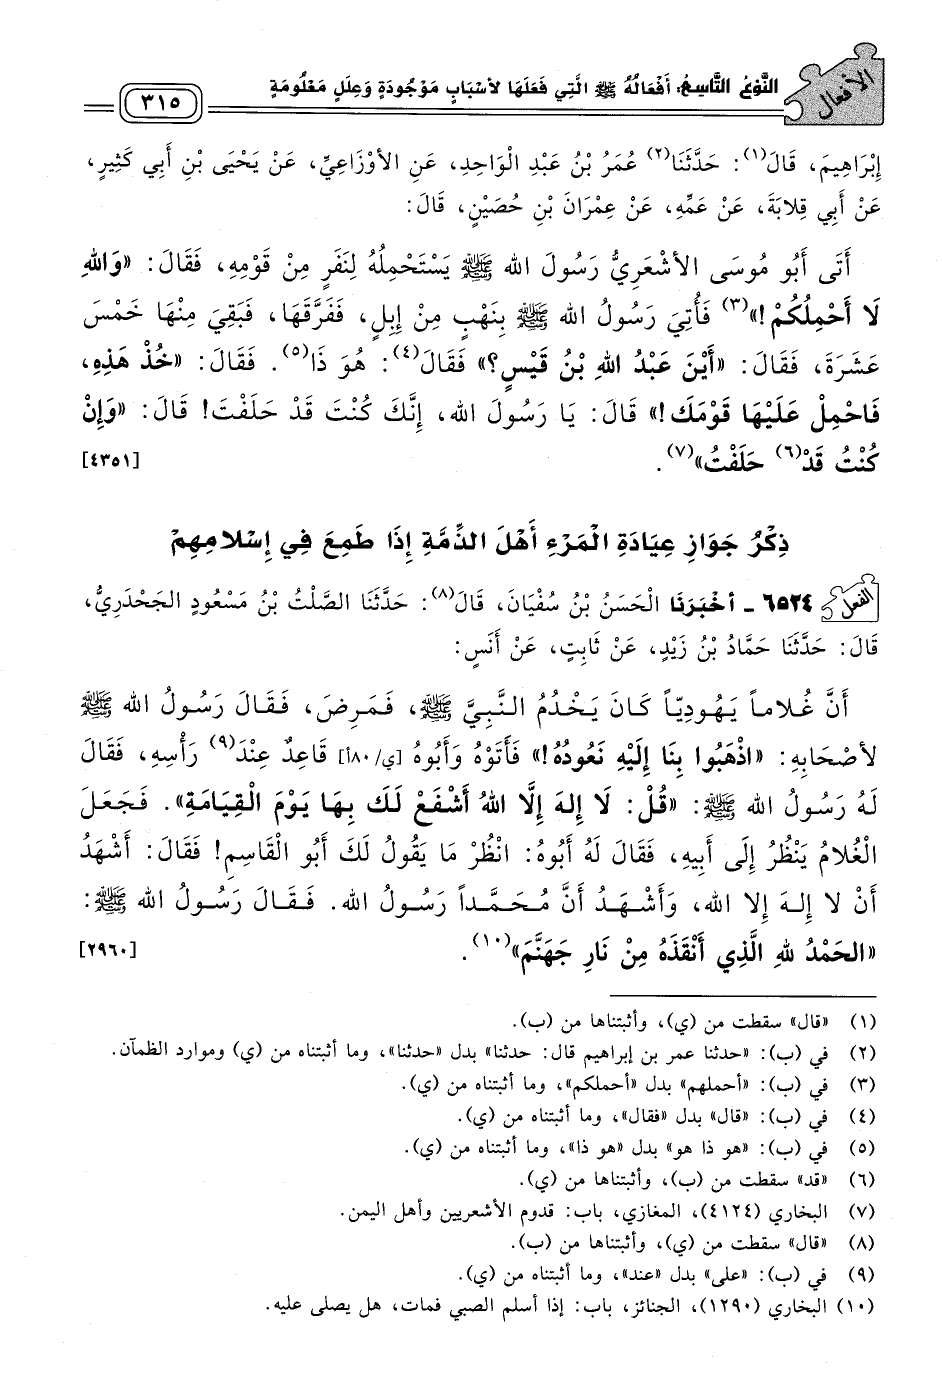 الأفعال
النَّوْعُ التَّاسِعُ: أَفْعَالُهُ ﷺ الَّتِي فَعَلَهَا لأَسْبَابٍ مَوْجُودَةٍ وَعِلَلٍ مَعْلُومَةٍ
٣١٥
إِبْرَاهِيمَ، قَالَ(١): حَدَّثَنَا(٢) عُمَرُ بْنُ عَبْدِ الْوَاحِدِ، عَنِ الأَوْزَاعِيِّ، عَنْ يَحْيَى بْنِ أَبِي كَثِيرٍ،
عَنْ أَبِي قِلابَةَ، عَنْ عَمِّهِ، عَنْ عِمْرَانَ بْنِ حُصَيْنٍ، قَالَ:
أَتَى أَبُو مُوسَى الأَشْعَرِيُّ رَسُولَ الله ﷺ يَسْتَحْمِلُهُ لِنَفَرٍ مِنْ قَوْمِهِ، فَقَالَ: «وَاللهِ
لَا أَحْمِلُكُمْ!»(٣) فَأُتِيَ رَسُولُ الله ﷺ بِنَهْبٍ مِنْ إِبِلٍ، فَفَرَّقَهَا، فَبَقِيَ مِنْهَا خَمْسَ
عَشَرَةَ، فَقَالَ: «أَيْنَ عَبْدُ اللهِ بْنُ قَيْسٍ؟» فَقَالَ(٤): هُوَ ذَا(٥). فَقَالَ: «خُذْ هَذِهِ،
فَاحْمِلْ عَلَيْهَا قَوْمَكَ!» قَالَ: يَا رَسُولَ الله، إِنَّكَ كُنْتَ قَدْ حَلَفْتَ! قَالَ: «وَإِنْ
كُنْتُ قَدْ(٦) حَلَفْتُ»(٧). [٤٣٥١]
ذِكْرُ جَوَازِ عِيَادَةِ الْمَرْءِ أَهْلَ الذِّمَّةِ إِذَا طَمِعَ فِي إِسْلامِهِمْ
الفعل ٦٥٢٤ ـ أَخْبَرَنَا الْحَسَنُ بْنُ سُفْيَانَ، قَالَ(٨): حَدَّثَنَا الصَّلْتُ بْنُ مَسْعُودٍ الجَحْدَرِيُّ،
قَالَ: حَدَّثَنَا حَمَّادُ بْنُ زَيْدٍ، عَنْ ثَابِتٍ، عَنْ أَنَسٍ:
أَنَّ غُلاماً يَهُودِيّاً كَانَ يَخْدُمُ النَّبِيَّ ﷺ، فَمَرِضَ، فَقَالَ رَسُولُ الله ﷺ
لأَصْحَابِهِ: «اذْهَبُوا بِنَا إِلَيْهِ نَعُودُهُ!» فَأَتَوْهُ وَأَبُوهُ [ي/٨٠أ] قَاعِدٌ عِنْدَ(٩) رَأْسِهِ، فَقَالَ
لَهُ رَسُولُ الله ﷺ: «قُلْ: لَا إِلهَ إِلَّا اللهُ أَشْفَعْ لَكَ بِهَا يَوْمَ الْقِيَامَةِ». فَجَعَلَ
الْغُلامُ يَنْظُرُ إِلَى أَبِيهِ، فَقَالَ لَهُ أَبُوهُ: انْظُرْ مَا يَقُولُ لَكَ أَبُو الْقَاسِمِ! فَقَالَ: أَشْهَدُ
أَنْ لا إِلهَ إِلا الله، وَأَشْهَدُ أَنَّ مُحَمَّداً رَسُولُ الله. فَقَالَ رَسُولُ الله ﷺ:
«الحَمْدُ للهِ الَّذِي أَنْقَذَهُ مِنْ نَارِ جَهَنَّمَ»(١٠). [٢٩٦٠]
(١) «قال» سقطت من (ي)، وأثبتناها من (ب).
(٢) في (ب): «حدثنا عمر بن إبراهيم قال: حدثنا» بدل «حدثنا»، وما أثبتناه من (ي) وموارد الظمآن.
(٣) في (ب): «أحملهم» بدل «أحملكم»، وما أثبتناه من (ي).
(٤) في (ب): «قال» بدل «فقال»، وما أثبتناه من (ي).
(٥) في (ب): «هو ذا هو» بدل «هو ذا»، وما أثبتناه من (ي).
(٦) «قد» سقطت من (ب)، وأثبتناها من (ي).
(٧) البخاري (٤١٢٤)، المغازي، باب: قدوم الأشعريين وأهل اليمن.
(٨) «قال» سقطت من (ي)، وأثبتناها من (ب).
(٩) في (ب): «على» بدل «عند»، وما أثبتناه من (ي).
(١٠) البخاري (١٢٩٠)، الجنائز، باب: إذا أسلم الصبي فمات، هل يصلى عليه.